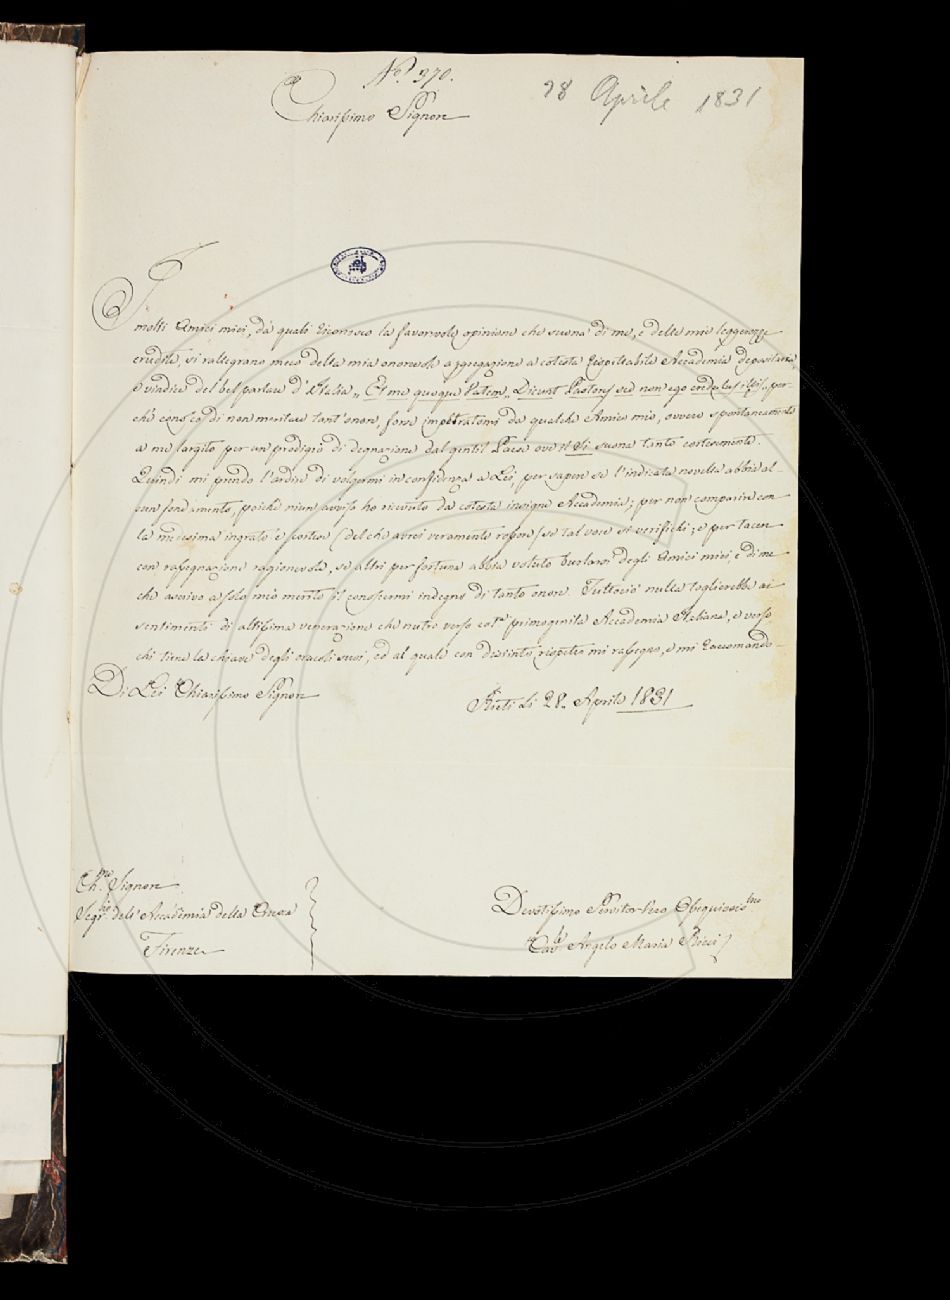 N.° 370.
28 Aprile 1831
Chiarissimo Signore
I
molti Amici miei, da' quali riconosco la favorevole opinione che suona di me, e delle mie leggerezze
erudite, si rallegrano meco della mia onorevole aggregazione a cotesta rispettabile Accademia depositaria,
e vindice del bel parlare d'Italia „ Et me quoque Vatem „ Dicunt Pastores sed non ego credulus illis, per-
chè conosco di non meritare tant'onore, forse impetratomi da qualche Amico mio, ovvero spontaneamente
a me largito per un prodigio di degnazione dal gentil Paese ove il Sì suona tanto cortesemente.
Quindi mi prendo l'ardire di volgermi in confidenza a Lei, per sapere se l'indicata novella abbia al-
cun fondamento, poichè niun avviso ho ricevuto da cotesta insigne Accademia; per non comparire con
la medesima ingrato e scortese (del che avrei veramente rossore) se tal voce si verifichi; e per tacere
con rassegnazione ragionevole, se altri per fortuna abbia voluto burlarsi degli Amici miei, e di me
che ascrivo a solo mio merito il conoscermi indegno di tanto onore. Tuttociò nulla toglierebbe ai
sentimenti di altissima venerazione che nutro verso cot.ta primogenita Accademia Italiana, e verso
chi tiene la chiave degli oracoli suoi, ed al quale con distinto rispetto mi rassegno, e mi raccomando
Di Lei Chiarissimo Signore
Rieti li 28. Aprile 1831
Ch.mo Signore
Segr.rio dell'Accademia della Crusca
Firenze
Devotissimo Servitor Vero Obequiosis.mo
Cav.re Angelo Maria Ricci